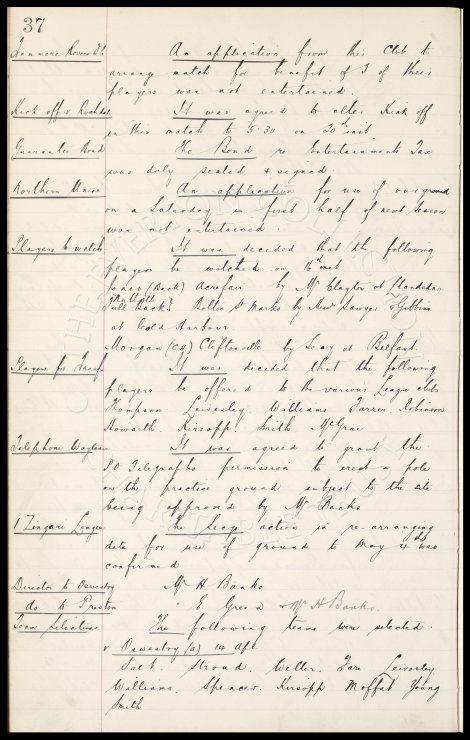 37
Tranmere Rovers F C An application from this Club to
arrange match for benefit of 3 of their
players was not entertained.
Kick off v Rochdale It was agreed to alter Kick off
in this match to 5.30 on 20th inst.
Guarantee Bond The Bond re Entertainments Tax
was duly sealed & signed.
Northern Union An application for use of our ground
on a Saturday in first half of next season
was not entertained.
Players to watch It was decided that the following
players be watched on 16th inst
Jones (Back) Acrefair by Mr Clayton at Llandudno
Full Backs Bolton St Marks by Messrs Sawyer & Gibbins
at Cold Harbour.
Morgan (CH) Cliftonville by Seay at Belfast.
Players for Transf It was decided that the following
players be offered to the various League clubs
Thompson Leivesley Williams Farren Robinson
Howarth Kirsopp Smith McGrae
Telephone Wayleave It was agreed to grant the
P O Telegraphs permission to erect a pole
on the practice ground subject to the site
being approved by Mr Banks
I Zingari League The Secys action in re-arranging
date for use of ground to May was
confirmed
Director to Oswestry Mr H Banks
do to Preston " E. Green & Mr H Banks.
Team Selections The following teams were selected.
v Oswestry (a) 14 Apl.
Salt. Stroud. Weller. Leivesley
Williams. Spencer. Kirsopp Moffat Young
Smith